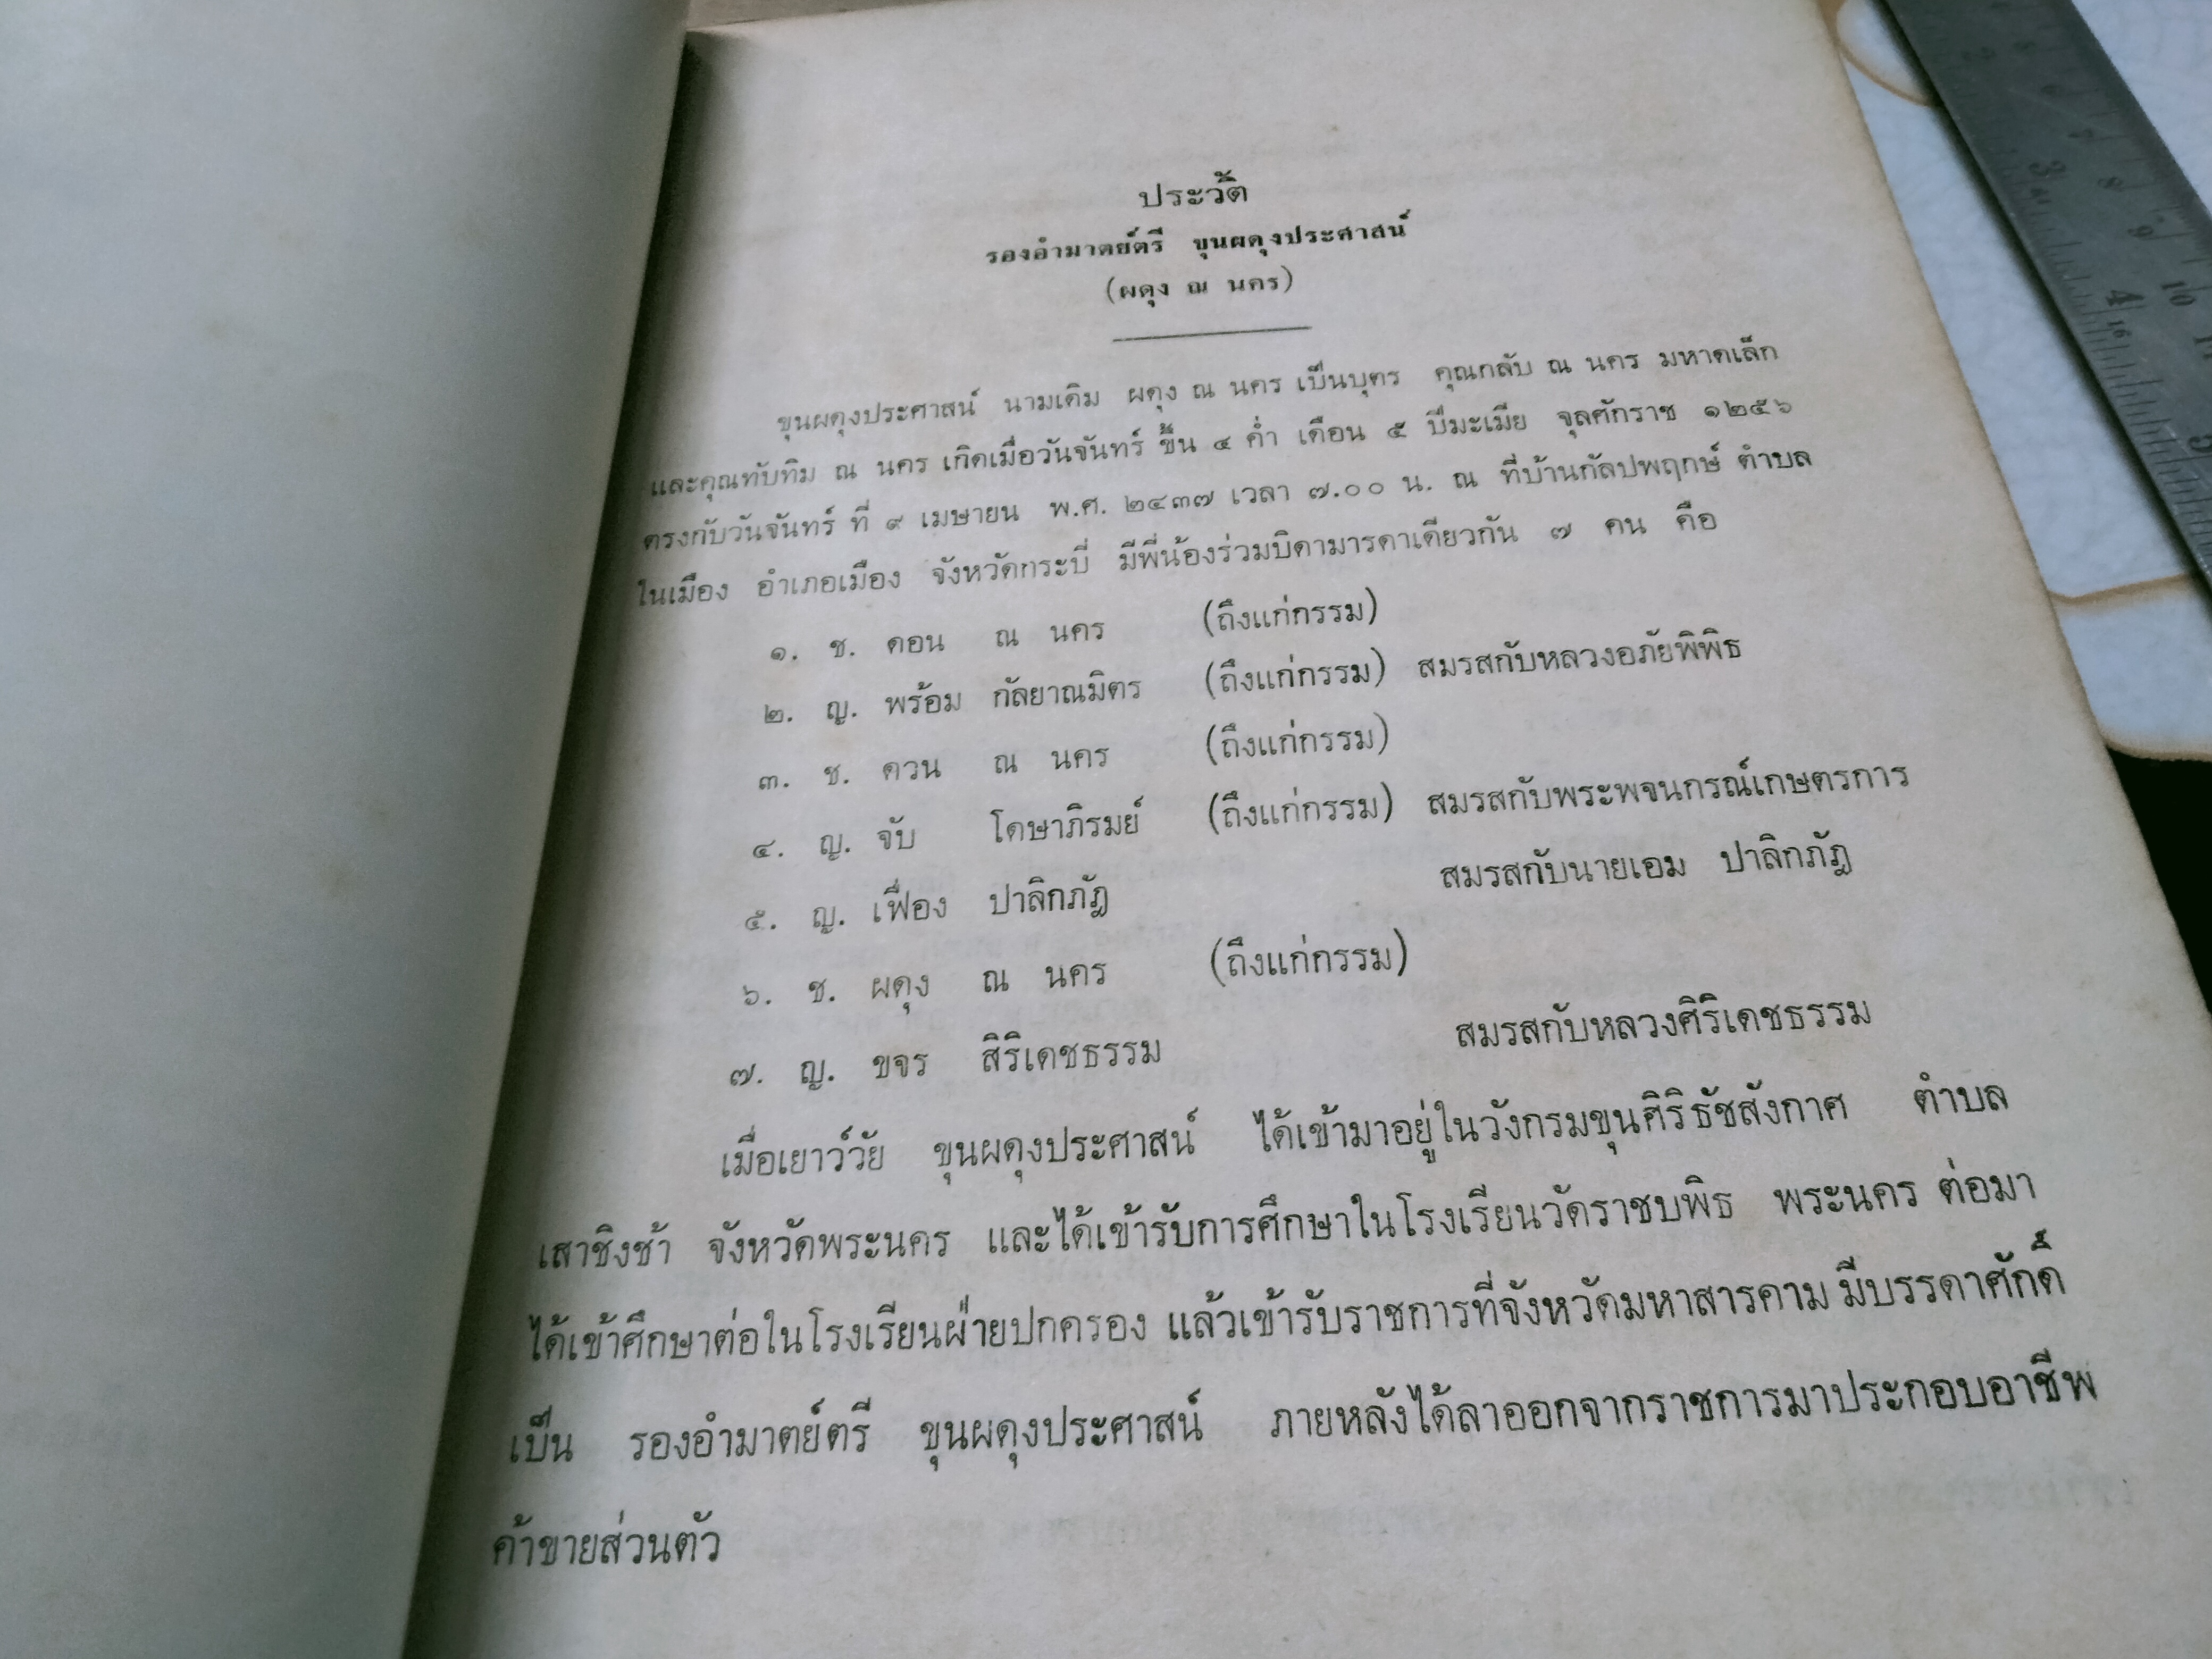 ประวัติ
รองอำมาตย์ตรี ขุนผดุงประศาสน์
(ผดุง ณ นคร)
ขุนผดุงประศาสน์ นามเดิม ผดุง ณ นคร เป็นบุตร คุณกลับ ณ นคร มหาดเล็ก
และคุณทับทิม ณ นคร เกิดเมื่อวันจันทร์ ขึ้น ๔ ค่ำ เดือน ๕ ปีมะเมีย จุลศักราช ๑๒๕๖
ตรงกับวันจันทร์ ที่ ๙ เมษายน พ.ศ. ๒๔๓๗ เวลา ๗.๐๐ น. ณ ที่บ้านกัลปพฤกษ์ ตำบล
ในเมือง อำเภอเมือง จังหวัดกระบี่ มีพี่น้องร่วมบิดามารดาเดียวกัน ๗ คน คือ
๑. ช. ดอน ณ นคร (ถึงแก่กรรม)
๒. ญ. พร้อม กัลยาณมิตร (ถึงแก่กรรม) สมรสกับหลวงอภัยพิพิธ
๓. ช. ควน ณ นคร (ถึงแก่กรรม)
๔. ญ. จับ โดษาภิรมย์ (ถึงแก่กรรม) สมรสกับพระพจนกรณ์เกษตรการ
๕. ญ. เฟื่อง ปาลิกภัฎ สมรสกับนายเอม ปาลิกภัฎ
๖. ช. ผดุง ณ นคร (ถึงแก่กรรม)
๗. ญ. ขจร สิริเดชธรรม สมรสกับหลวงศิริเดชธรรม
เมื่อเยาว์วัย ขุนผดุงประศาสน์ ได้เข้ามาอยู่ในวังกรมขุนศิริธัชสังกาศ ตำบล
เสาชิงช้า จังหวัดพระนคร และได้เข้ารับการศึกษาในโรงเรียนวัดราชบพิธ พระนคร ต่อมา
ได้เข้าศึกษาต่อในโรงเรียนฝ่ายปกครอง แล้วเข้ารับราชการที่จังหวัดมหาสารคาม มีบรรดาศักดิ์
เป็น รองอำมาตย์ตรี ขุนผดุงประศาสน์ ภายหลังได้ลาออกจากราชการมาประกอบอาชีพ
ค้าขายส่วนตัว
3
4
8
9
10
16